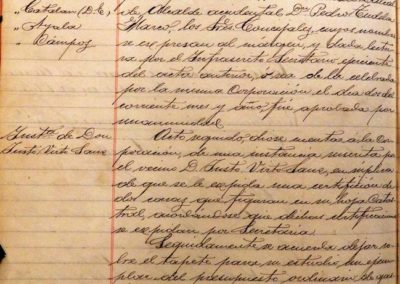 " Catalan (D. E.)
" Ayala
" Campos
de Alcalde accidental Don Pedro
los Sres. Concejales, cuyos nombres
se expresan al margen, y dada lectura
por el Infrascrito Secretario
del acta anterior, o sea de la celebrada
por la misma Corporacion el dia dos del
corriente mes y año, fué aprobada por
unanimidad.
Inst.ª de Don
Justo Verte Sanz
Acto seguido, diose cuenta a la Cor-
poracion, de una instancia suscrita por
el vecino D. Justo Verte Sanz, en suplica
de que se le expida una certificacion de
dos casas que figuran en su hoja Catas-
tral, acordandose que dichas certificaciones
se expidan por Secretaria.
Seguidamente se acuerda dejar so-
bre el tapete para su estudio, un ejem-
plar del presupuesto ordinario de gas-